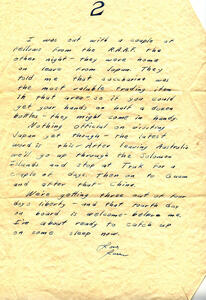 2
I was out with a couple of
fellows from the R.A.A.F. the
other night - they were home
on leave from Japan. They
told me that saccharine was
the most valuable trading item
in that area - so if you could
get your hands on half a dozen
bottles - they might come in handy.
Nothing official on visiting
Japan yet though - the latest
word is this - After leaving Australia
we'll go up through the Solomon
Islands and stop at Truk for a
couple of days. Then on to Guam
and after that - China.
We're getting three out of four
days liberty - and that fourth day
on board is welcome - believe me.
I'm about ready to catch up
on some sleep now.
Love